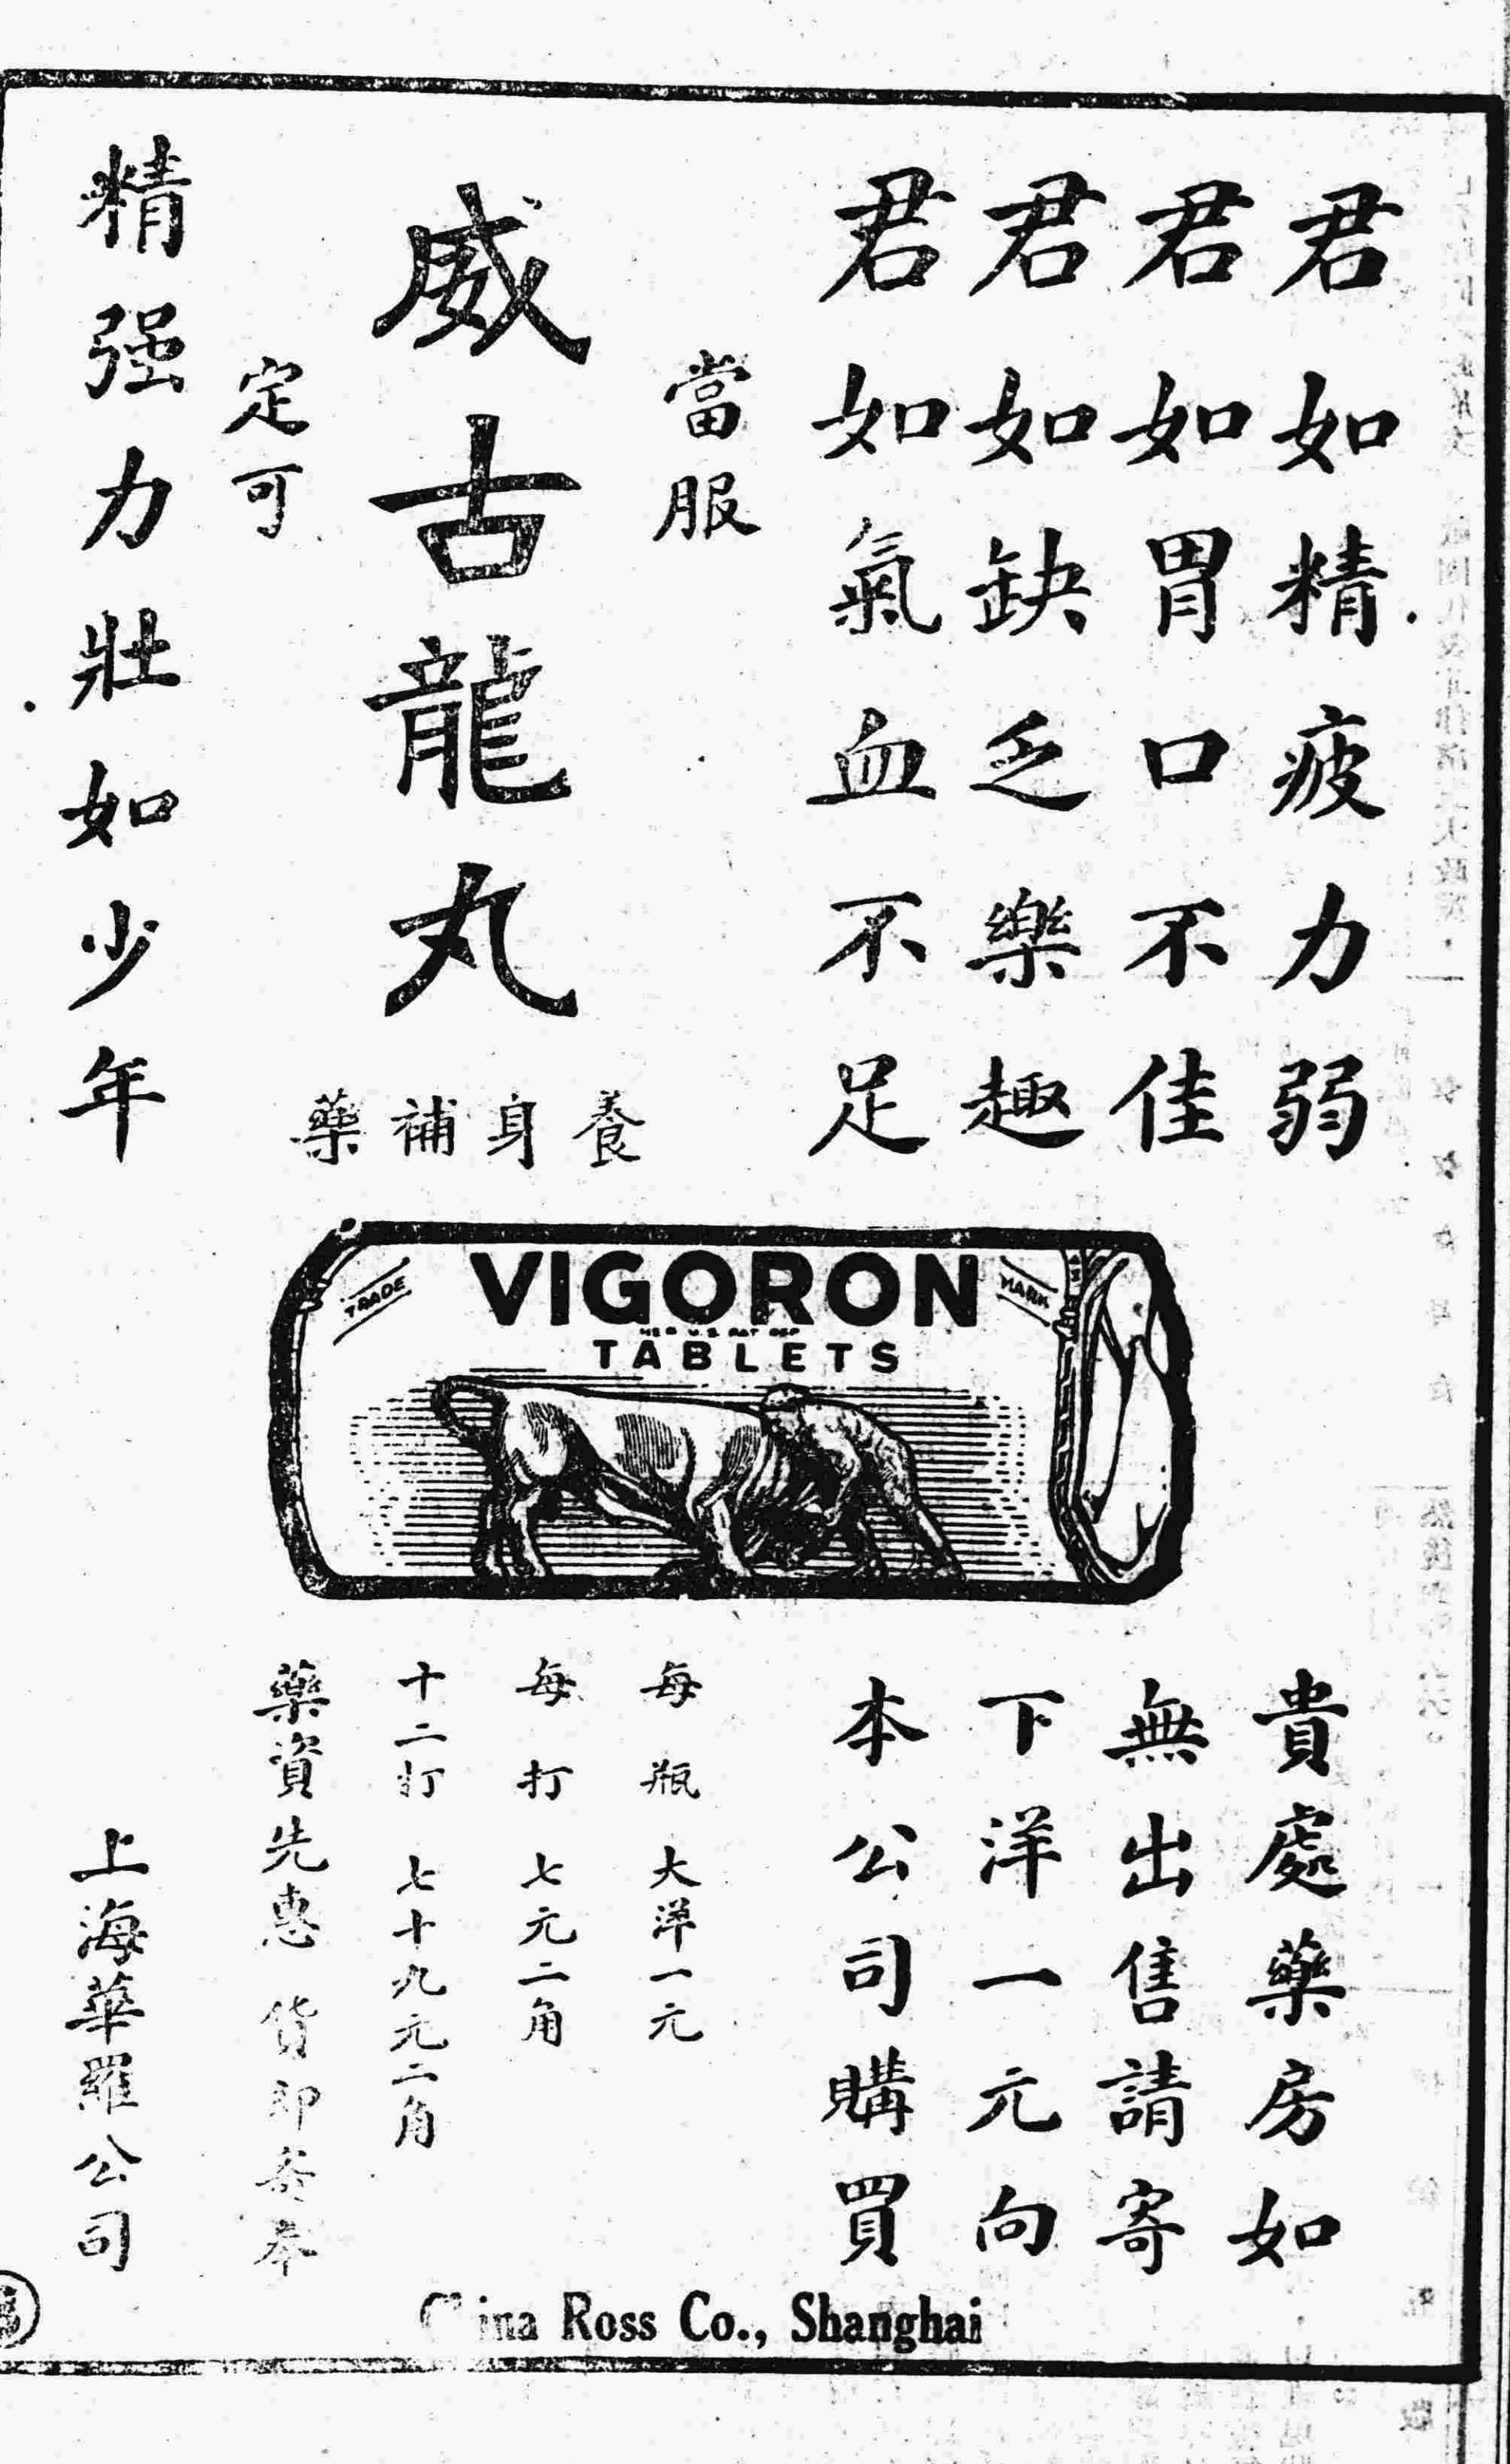 君如精疲力弱
君如胃口不佳
君如缺乏樂趣
君如氣血不足
當服
威古龍丸
養身補藥
定可
精强力壯如少年
TRADE
VIGORON
MARK
REG U.S. PAT OFF
TABLETS
貴處藥房如
無出售請寄
下洋一元向
本公司購買
每瓶 大洋一元
每打 七元二角
十二打 七十九元二角
藥資先惠 貨即寄奉
上海華羅公司
China Ross Co., Shanghai